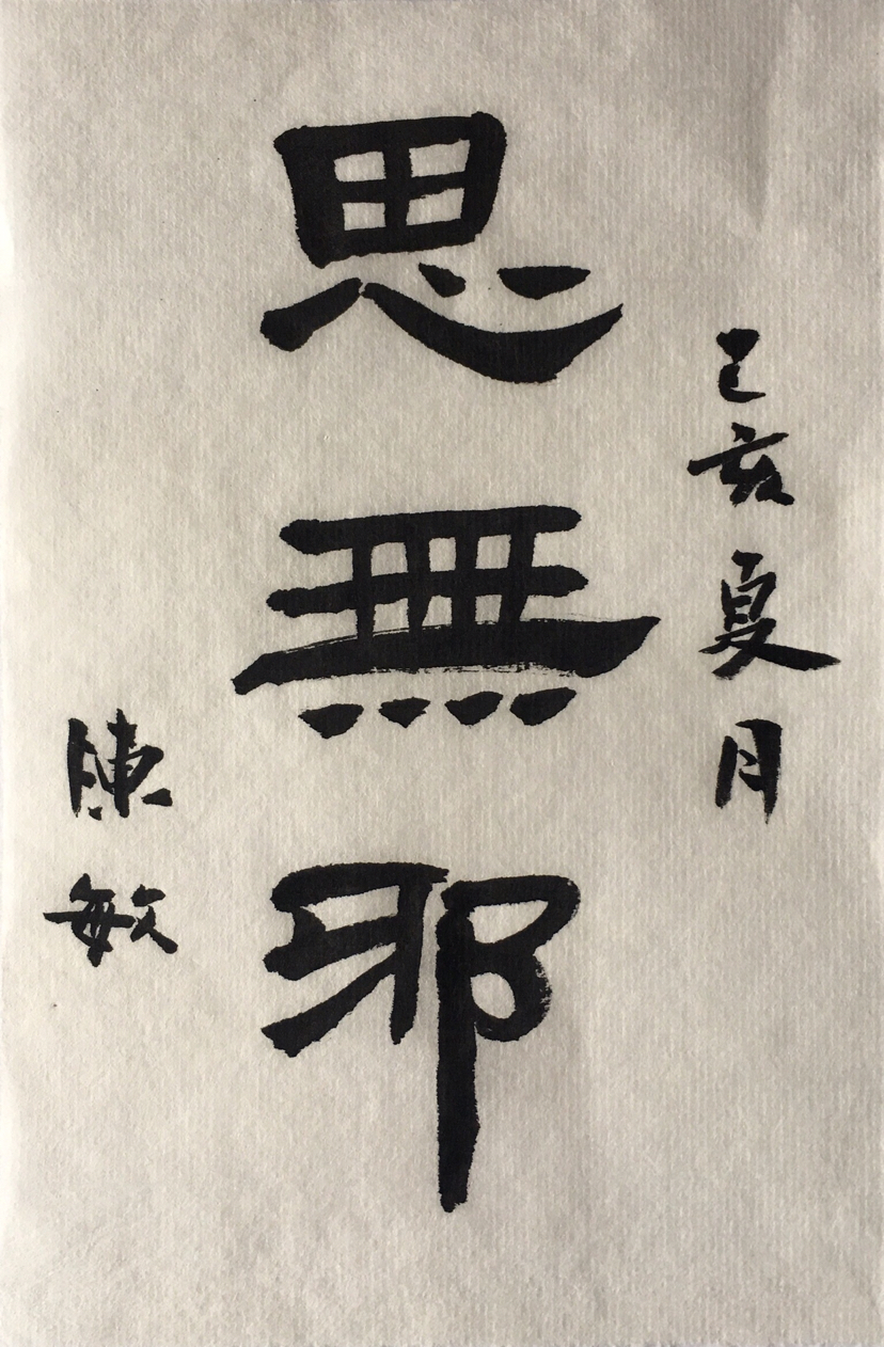 己亥夏月
思無邪
陳敏